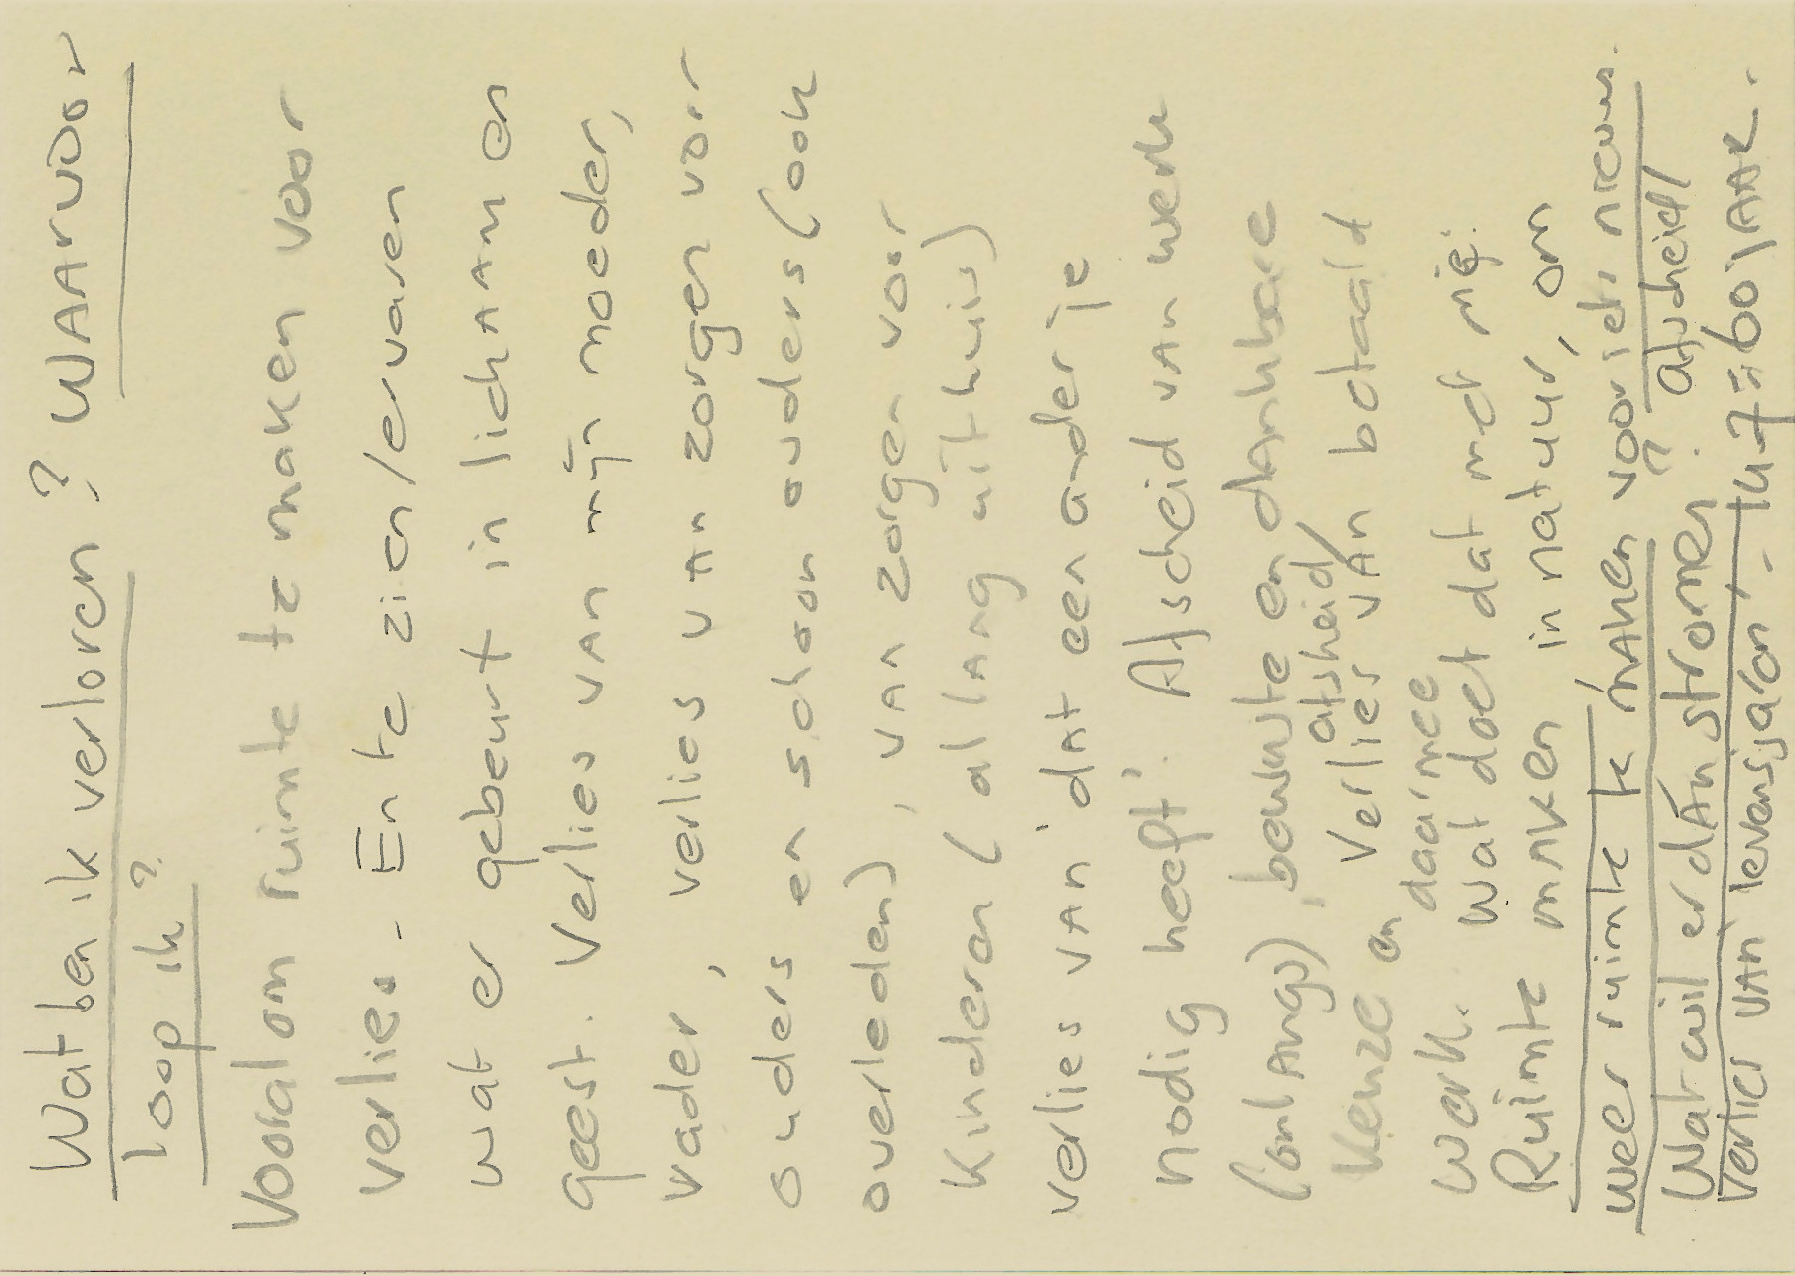 Wat ben ik verloren? WAArvoor
loop ik?
Vooral om ruimte te maken voor
verlies. En te zien/ervaren
wat er gebeurt in lichAAm en
geest. Verlies vAn mijn moeder,
vader, verlies vAn zorgen voor
ouders en schoonouders (ook
overleden), vAn zorgen voor
Kinderen (al lAng uit huis)
verlies vAn 'dAt een ander je
nodig heeft'. Afscheid vAn werk
(onlAngs), bewuste en dAnkbare
Keuze en verlies vAn betaald
afscheid/
daarmee
werk. Wat doet dat met mij.
Ruimte mAken in natuur, om
weer ruimte te mAken voor iets nieuws.
Wat wil er dAn stromen?
afscheid/
verlies vAn levensjaren, ik 7=60 jAAR.